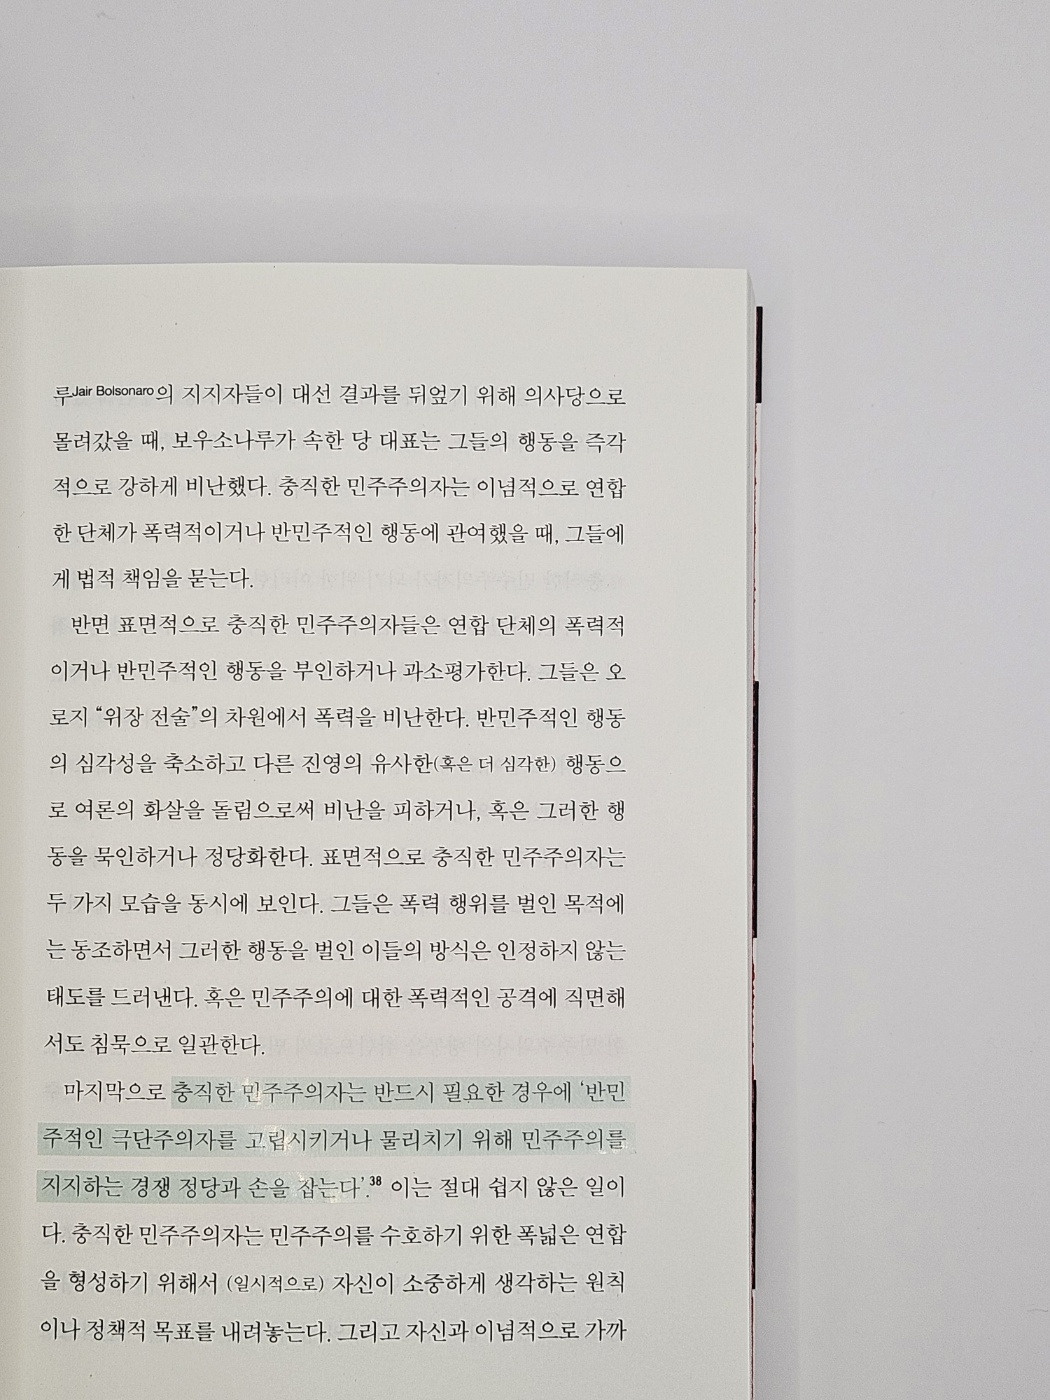 루Jair Bolsonaro의 지지자들이 대선 결과를 뒤엎기 위해 의사당으로
몰려갔을 때, 보우소나루가 속한 당 대표는 그들의 행동을 즉각
적으로 강하게 비난했다. 충직한 민주주의자는 이념적으로 연합
한 단체가 폭력적이거나 반민주적인 행동에 관여했을 때, 그들에
게 법적 책임을 묻는다.
반면 표면적으로 충직한 민주주의자들은 연합 단체의 폭력적
이거나 반민주적인 행동을 부인하거나 과소평가한다. 그들은 오
로지 “위장 전술”의 차원에서 폭력을 비난한다. 반민주적인 행동
의 심각성을 축소하고 다른 진영의 유사한(혹은 더 심각한) 행동으
로 여론의 화살을 돌림으로써 비난을 피하거나, 혹은 그러한 행
동을 묵인하거나 정당화한다. 표면적으로 충직한 민주주의자는
두 가지 모습을 동시에 보인다. 그들은 폭력 행위를 벌인 목적에
는 동조하면서 그러한 행동을 벌인 이들의 방식은 인정하지 않는
태도를 드러낸다. 혹은 민주주의에 대한 폭력적인 공격에 직면해
서도 침묵으로 일관한다.
마지막으로 충직한 민주주의자는 반드시 필요한 경우에 ‘반민
주적인 극단주의자를 고립시키거나 물리치기 위해 민주주의를
지지하는 경쟁 정당과 손을 잡는다’.38 이는 절대 쉽지 않은 일이
다. 충직한 민주주의자는 민주주의를 수호하기 위한 폭넓은 연합
을 형성하기 위해서 (일시적으로) 자신이 소중하게 생각하는 원칙
이나 정책적 목표를 내려놓는다. 그리고 자신과 이념적으로 가까